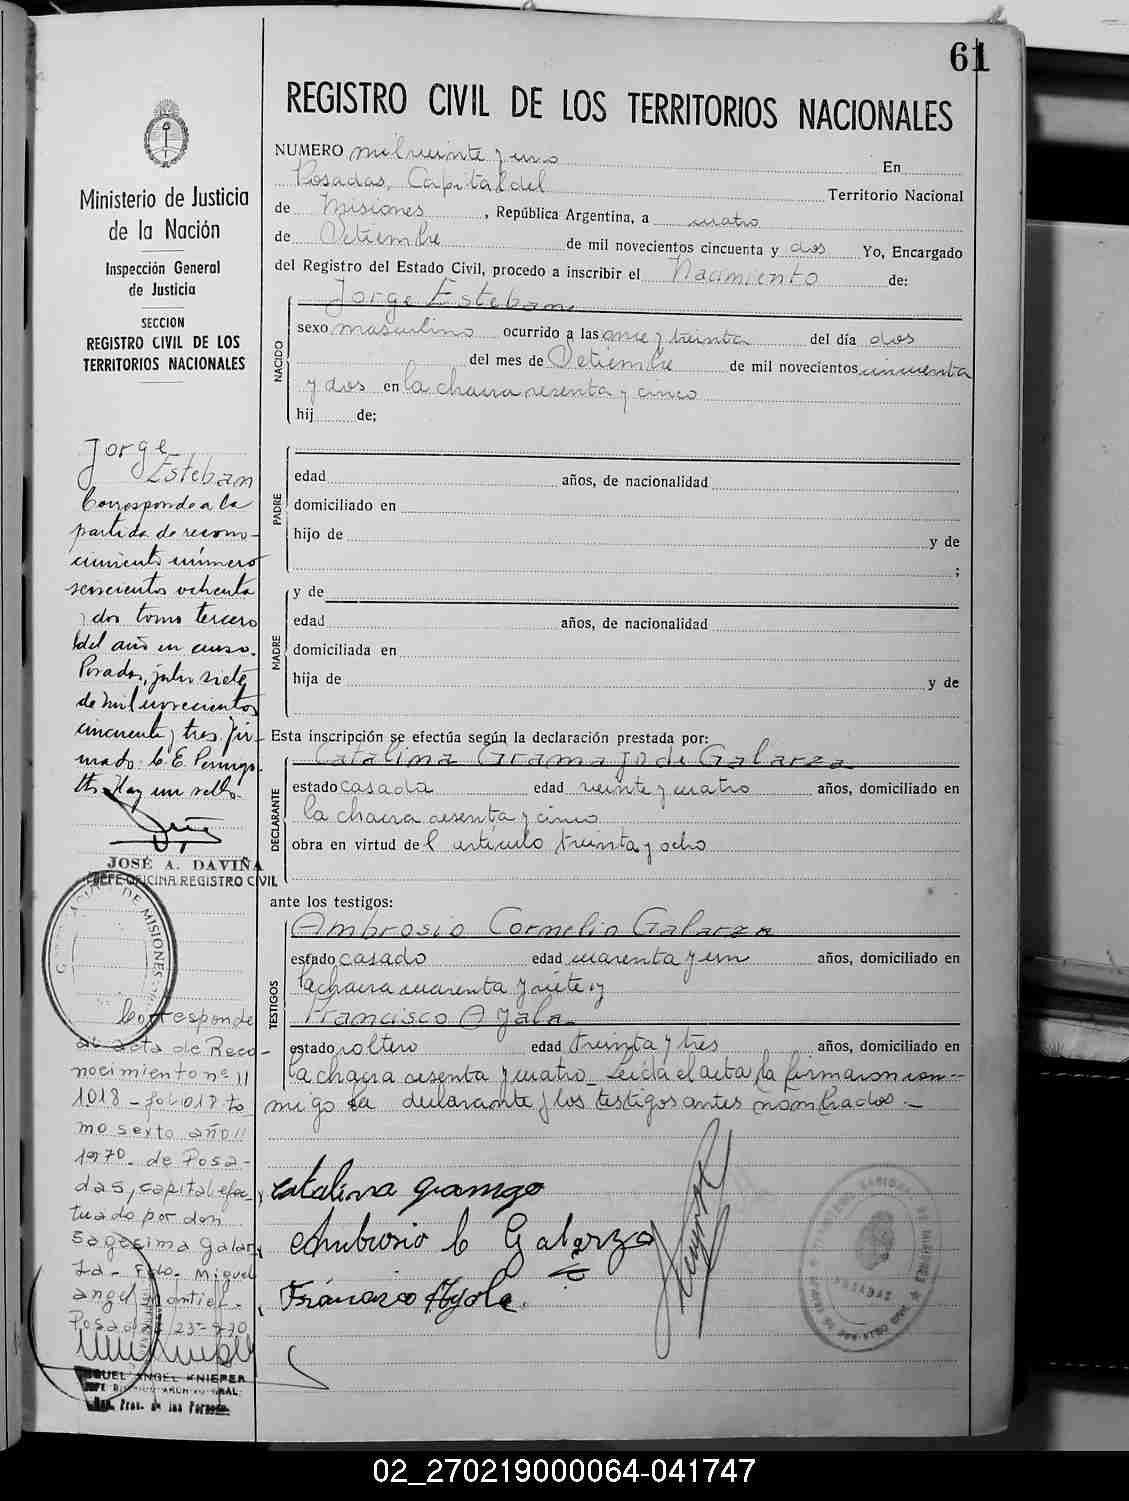 61
REGISTRO CIVIL DE LOS TERRITORIOS NACIONALES
Ministerio de Justicia
de la Nación
Inspección General
de Justicia
SECCION
REGISTRO CIVIL DE LOS
TERRITORIOS NACIONALES
NUMERO mil veinte y uno En
Posadas, Capital del Territorio Nacional
de Misiones, República Argentina, a cuatro
de Setiembre de mil novecientos cincuenta y dos Yo, Encargado
del Registro del Estado Civil, procedo a inscribir el Nacimiento de:
NACIDO
Jorge Esteban
sexo masculino ocurrido a las once y treinta del día dos
del mes de Setiembre de mil novecientos cincuenta
y dos en la chacra sesenta y cinco
hij de;
PADRE
edad años, de nacionalidad
domiciliado en
hijo de y de
;
MADRE
y de
edad años, de nacionalidad
domiciliada en
hija de y de
Esta inscripción se efectúa según la declaración prestada por:
DECLARANTE
Catalina Gramajo de Galarza
estado casada edad veinte y cuatro años, domiciliado en
la chacra sesenta y cinco
obra en virtud del artículo treinta y ocho
ante los testigos:
TESTIGOS
Ambrosio Cornelio Galarza
estado casado edad cuarenta y un años, domiciliado en
la chacra cuarenta y siete y
Francisco Ayala
estado soltero edad treinta y tres años, domiciliado en
la chacra sesenta y cuatro_ Leida el acta la firmaron con--
migo la declarante y los testigos antes nombrados.-
Catalina gramajo
Ambrosio C Galarza
Francisco Ayala.
Jorge
Esteban
Corresponde a la
partida de recono-
cimiento número
seiscientos ochenta
y dos tomo tercero
del año en curso.
Posadas, julio siete
de mil novecientos
cincuenta y tres. Fir-
mado: C. E.
Hay un sello.
JOSÉ A. DAVIÑA
JEFE OFICINA REGISTRO CIVIL
DE MISIONES
Corresponde
al acta de Reco-
nocimiento nº 11
1018 - folio 18 to
mo sexto año 11
1970. de Posa-
das, capital efec
tuado por don
Sagesima galar
za- Fdo. Miguel
angel Montiel-
Posadas, 23-9-70
MIGUEL ANGEL KNIEPER
02_270219000064-041747